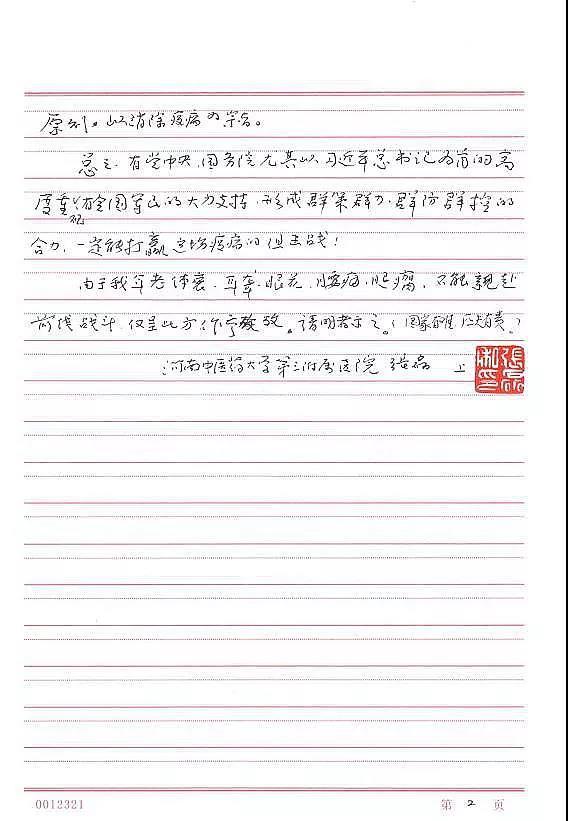 原则。以消除疫病为宗旨。
总之,有党中央、国务院尤其以习近平总书记为首的高
度重视,全国军民的大力支持,形成群策群力、群防群控的
合力,一定能打赢这场疫病的阻击战!
由于我年老体衰、耳聋、眼花、腰痛、腿痛,不能亲赴
前线战斗,仅呈此方作奉献。请明者示之。(国家有难,匹夫有责。)
河南中医药大学第三附属医院 张磊 上
張磊私印
0012321
第 2 页